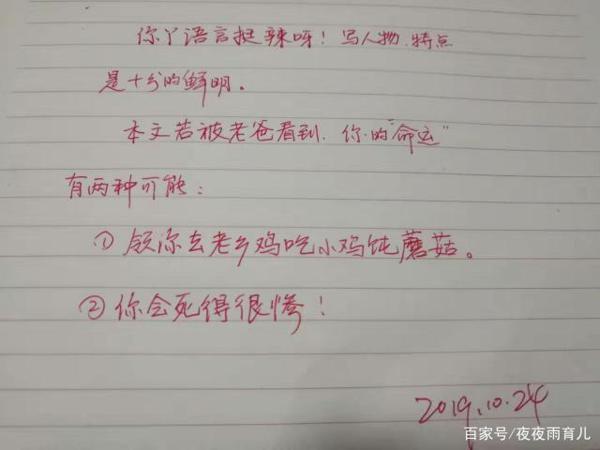 你丫语言挺辣呀！写人物.特点
是十分的鲜明。
本文若被老爸看到.你的"命运"
有两种可能：
①领你去老乡鸡吃小鸡饨蘑菇。
②你会死得很惨！
2019.10.24
百家号/夜夜雨育儿